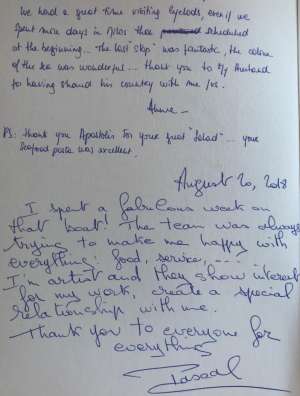 We had a great time visiting Cyclads, even if we
spent more days in Milos then scheduled
at the beginning... The last step was fantastic, the colour
of the sea was wonderful... thank you to my husband
for having shared his country with me / us.
PS: thank you Apostolis for your great "salad" ... your
Seafood pasta was excellent.
August 20, 2018
I spent a fabulous week on
that boat! The team was always
trying to make me happy with
everything: food, service, ....
I'm artist and they show interest
for my work, create a special
relationship with me.
Thank you to everyone for
everything
Pascal